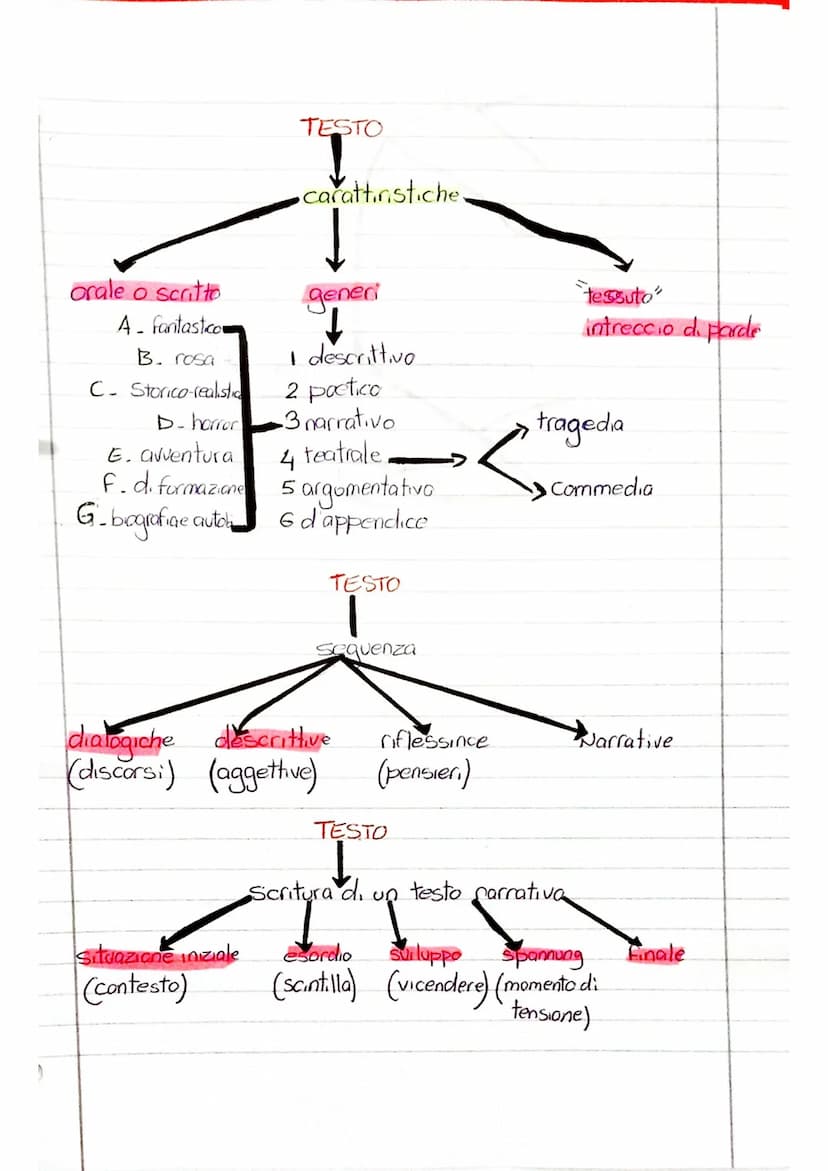 TESTO
carattiristiche
orale o scritto
generi
"tessuto"
intreccio di parole
A - fantastico
B. rosa
C - Storico-realistico
D - horror
E. avventura
F. di formazione
G - biografia e autob
1 descrittivo
2 poetico
3 narrativo
4 teatrale
5 argomentativo
6 d'appendice
tragedia
commedia
TESTO
sequenza
dialogiche
(discorsi)
descrittive
(aggettive)
riflessince
(pensieri)
Narrative
TESTO
scritura di un testo narrativo
situazione iniziale
(contesto)
esordio
(scintilla)
sviluppo
(vicendere)
spannung
(momento di
tensione)
Finale